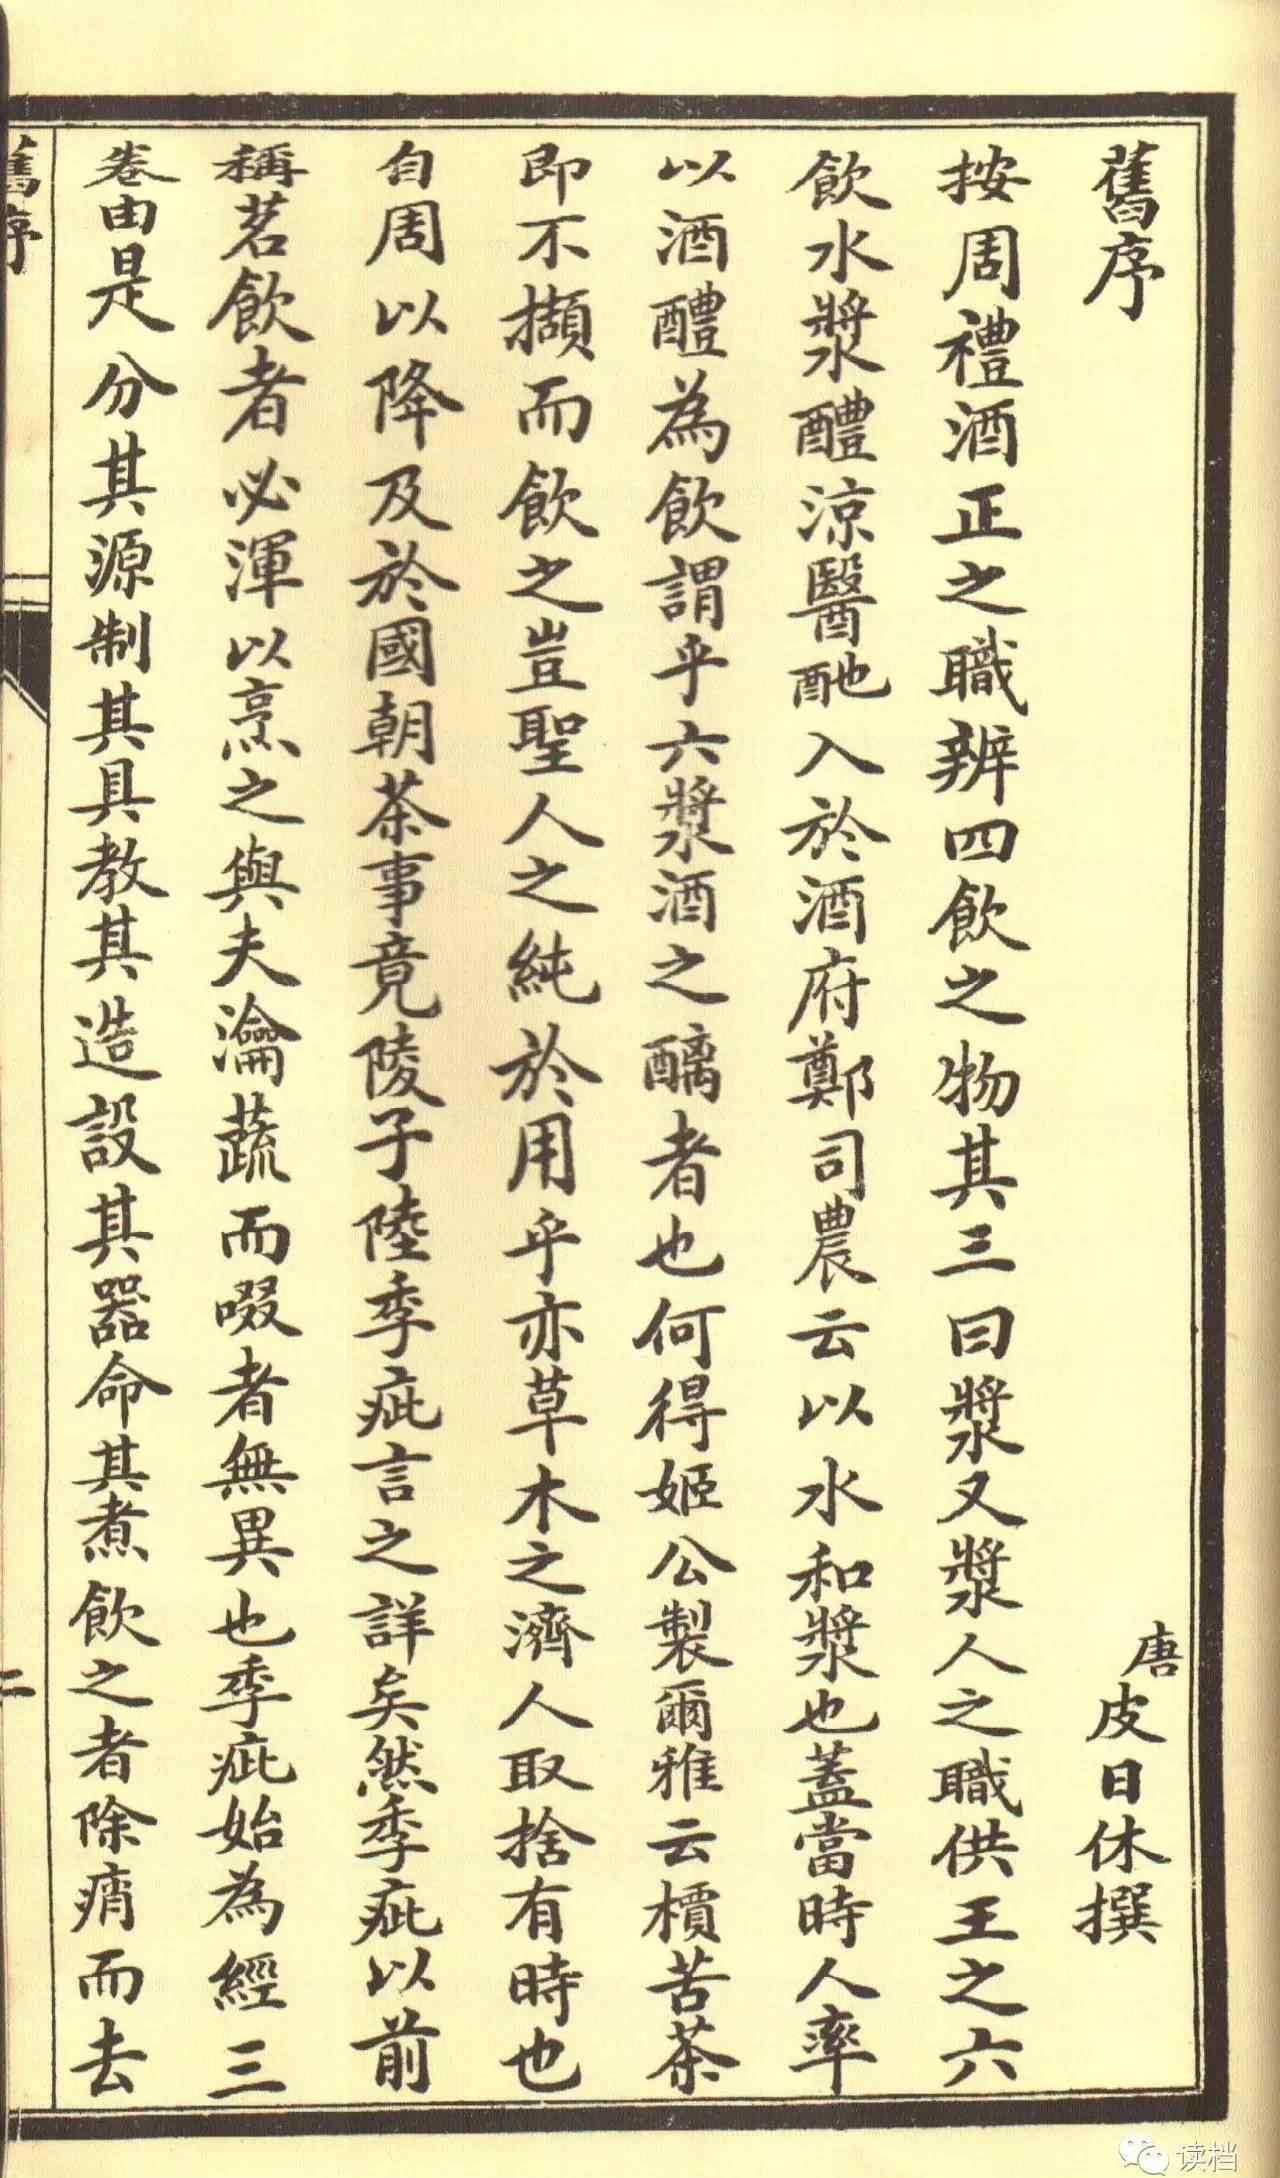 舊序
唐皮日休撰
按周禮酒正之職辨四飲之物其三曰漿又漿人之職供王之六
飲水漿醴涼醫酏入於酒府鄭司農云以水和漿也蓋當時人率
以酒醴為飲謂乎六漿酒之醨者也何得姬公製爾雅云檟苦茶
即不擷而飲之豈聖人之純於用乎亦草木之濟人取捨有時也
自周以降及於國朝茶事竟陵子陸季疵言之詳矣然季疵以前
稱茗飲者必渾以烹之與夫瀹蔬而啜者無異也季疵始為經三
卷由是分其源制其具教其造設其器命其煮飲之者除痟而去
舊序
二
读档